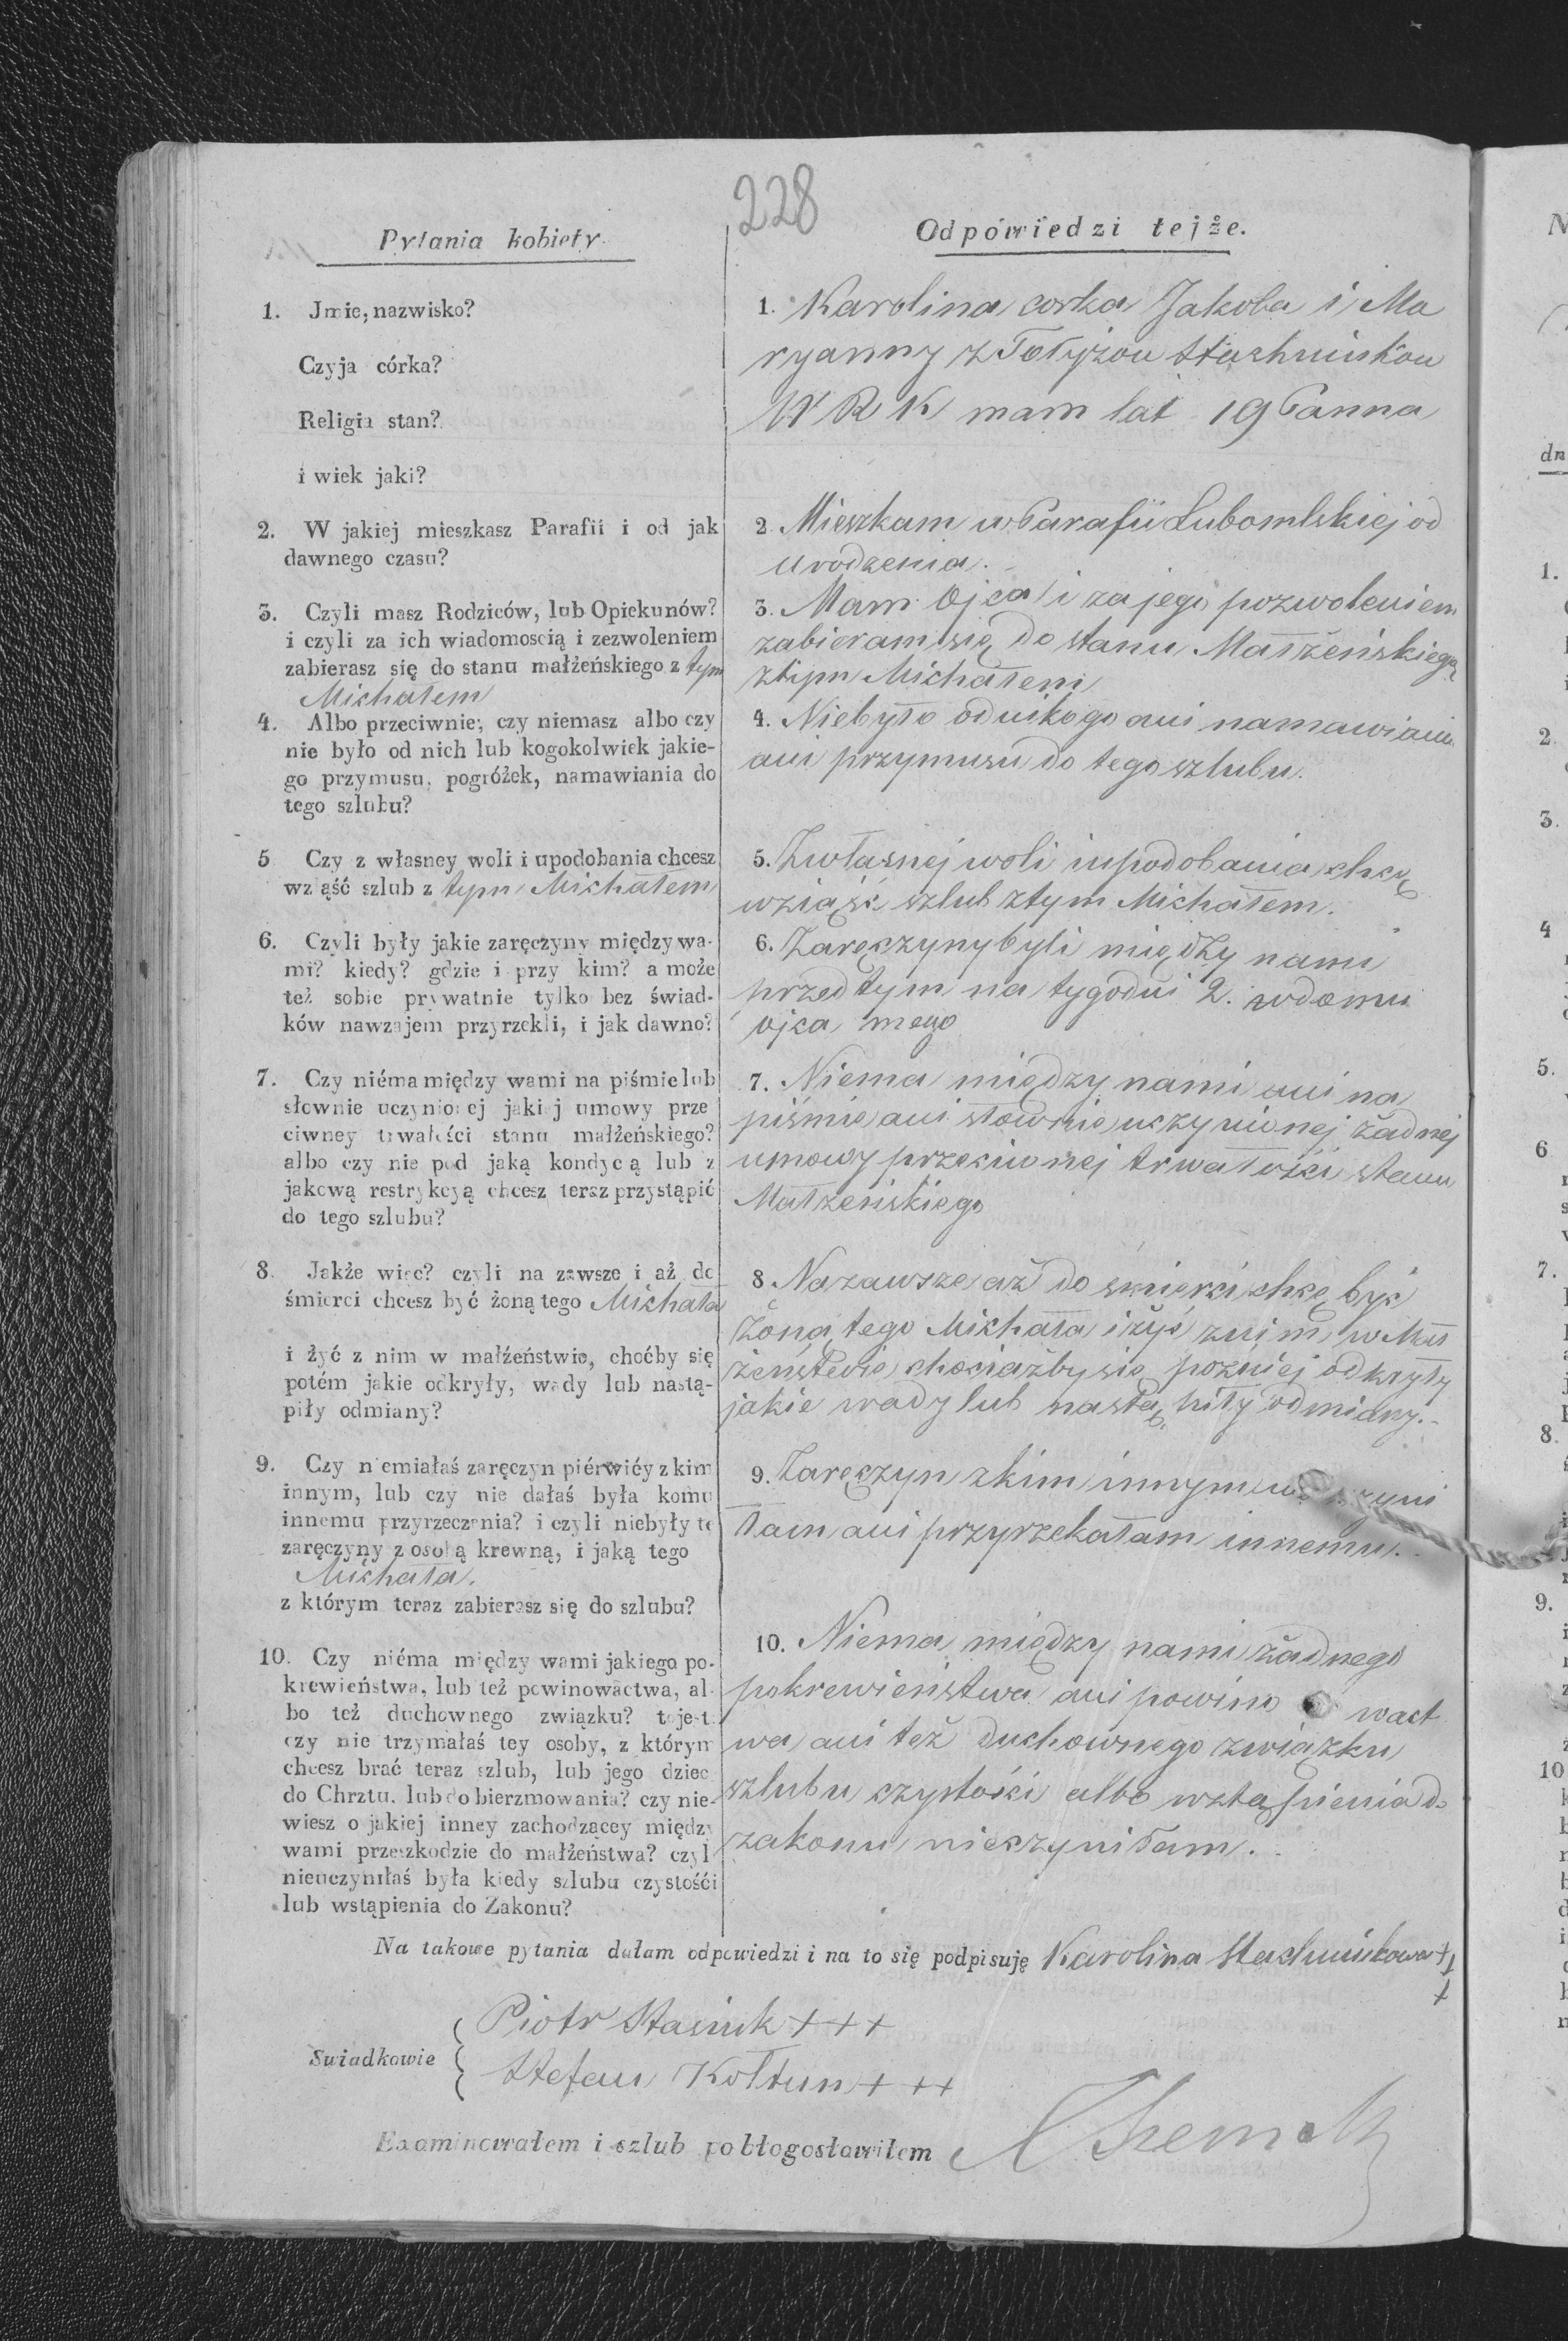 228
Pytania kobiety.
1. Jmie, nazwisko?
Czyja córka?
Religia stan?
i wiek jaki?
2. W jakiej mieszkasz Parafii i od jak
dawnego czasu?
3. Czyli masz Rodziców, lub Opiekunów?
i czyli za ich wiadomoscią i zezwoleniem
zabierasz się do stanu małżeńskiego z tym
Michałem
4. Albo przeciwnie, czy niemasz albo czy
nie było od nich lub kogokolwiek jakie-
go przymusu, pogróżek, namawiania do
tego szlubu?
5 Czy z własney woli i upodobania chcesz
wziąść szlub z tym Michałem
6. Czyli były jakie zaręczyny między wa-
mi? kiedy? gdzie i przy kim? a może
też sobie prywatnie tylko bez świad-
ków nawzajem przyrzekli, i jak dawno?
7. Czy niéma między wami na piśmie lub
słownie uczynionej jakiej umowy prze
ciwney trwałości stanu małżeńskiego?
albo czy nie pod jaką kondycą lub z
jakową restrykcyą chcesz teraz przystąpić
do tego szlubu?
8. Jakże więc? czyli na zawsze i aż do
śmierci chcesz być żoną tego Michała
i żyć z nim w małżeństwie, choćby się
potém jakie odkryły, wady lub nastą-
piły odmiany?
9. Czy niemiałaś zaręczyn piérwiéy z kim
innym, lub czy nie dałaś była komu
innemu przyrzeczenia? i czyli niebyły te
zaręczyny z osobą krewną, i jaką tego
Michała.
z którym teraz zabierasz się do szlubu?
10. Czy niéma między wami jakiego po-
krewieństwa, lub też powinowactwa, al-
bo też duchownego związku? to jest
czy nie trzymałaś tey osoby, z którym
chcesz brać teraz szlub, lub jego dziec
do Chrztu, lub do bierzmowania? czy nie-
wiesz o jakiej inney zachodzącey między
wami przeszkodzie do małżeństwa? czyl
nieuczyniłaś była kiedy szlubu czystośći
lub wstąpienia do Zakonu?
Odpówiedzi tejże.
1. Karolina corka Jakoba i Ma
ryanny z Tołyżow Stachniukow
W R K mam lat 19 Panna
2. Mieszkam w Parafii Lubomlskiej od
urodzenia.
3. Mam Ojca i za jego pozwoleniem
zabieram się do stanu Małżeńskiego
z tym Michałem
4. Niebyło od nikogo ani namawiania
ani przymusu do tego szlubu.
5. Zwłasnej woli i upodobania chcę
wziąść szlub z tym Michałem.
6. Zaręczyny byli między nami
przed tym na tygodni 2. w domu
ojca mego
7. Niema między nami ani na
piśmie ani słownie uczynionej żadnej
umowy przeciwnej trwałości stanu
Małżeńskiego
8 Nazawsze aż do śmierci chcę być
żoną tego Michała i żyć znim w Mał
żeństwie chociażby sie pozniej odkryły
jakie wady lub nastąpiły odmiany.-
9. Zaręczyn z kim innym
łam ani przyrzekałam innemu.
10. Niema między nami żadnego
pokrewieństwa ani powino wact
wa ani też duchownego związku
szlubu czystości albo wstąpienia do
zakonu nieczyniłam.
Na takowe pytania dałam odpowiedzi i na to się podpisuję Karolina Stachniukowa +++
Swiadkowie
Piotr Stasiuk +++
Stefan Kołtun +++
Examinowałem i szlub pobłogosławiłem